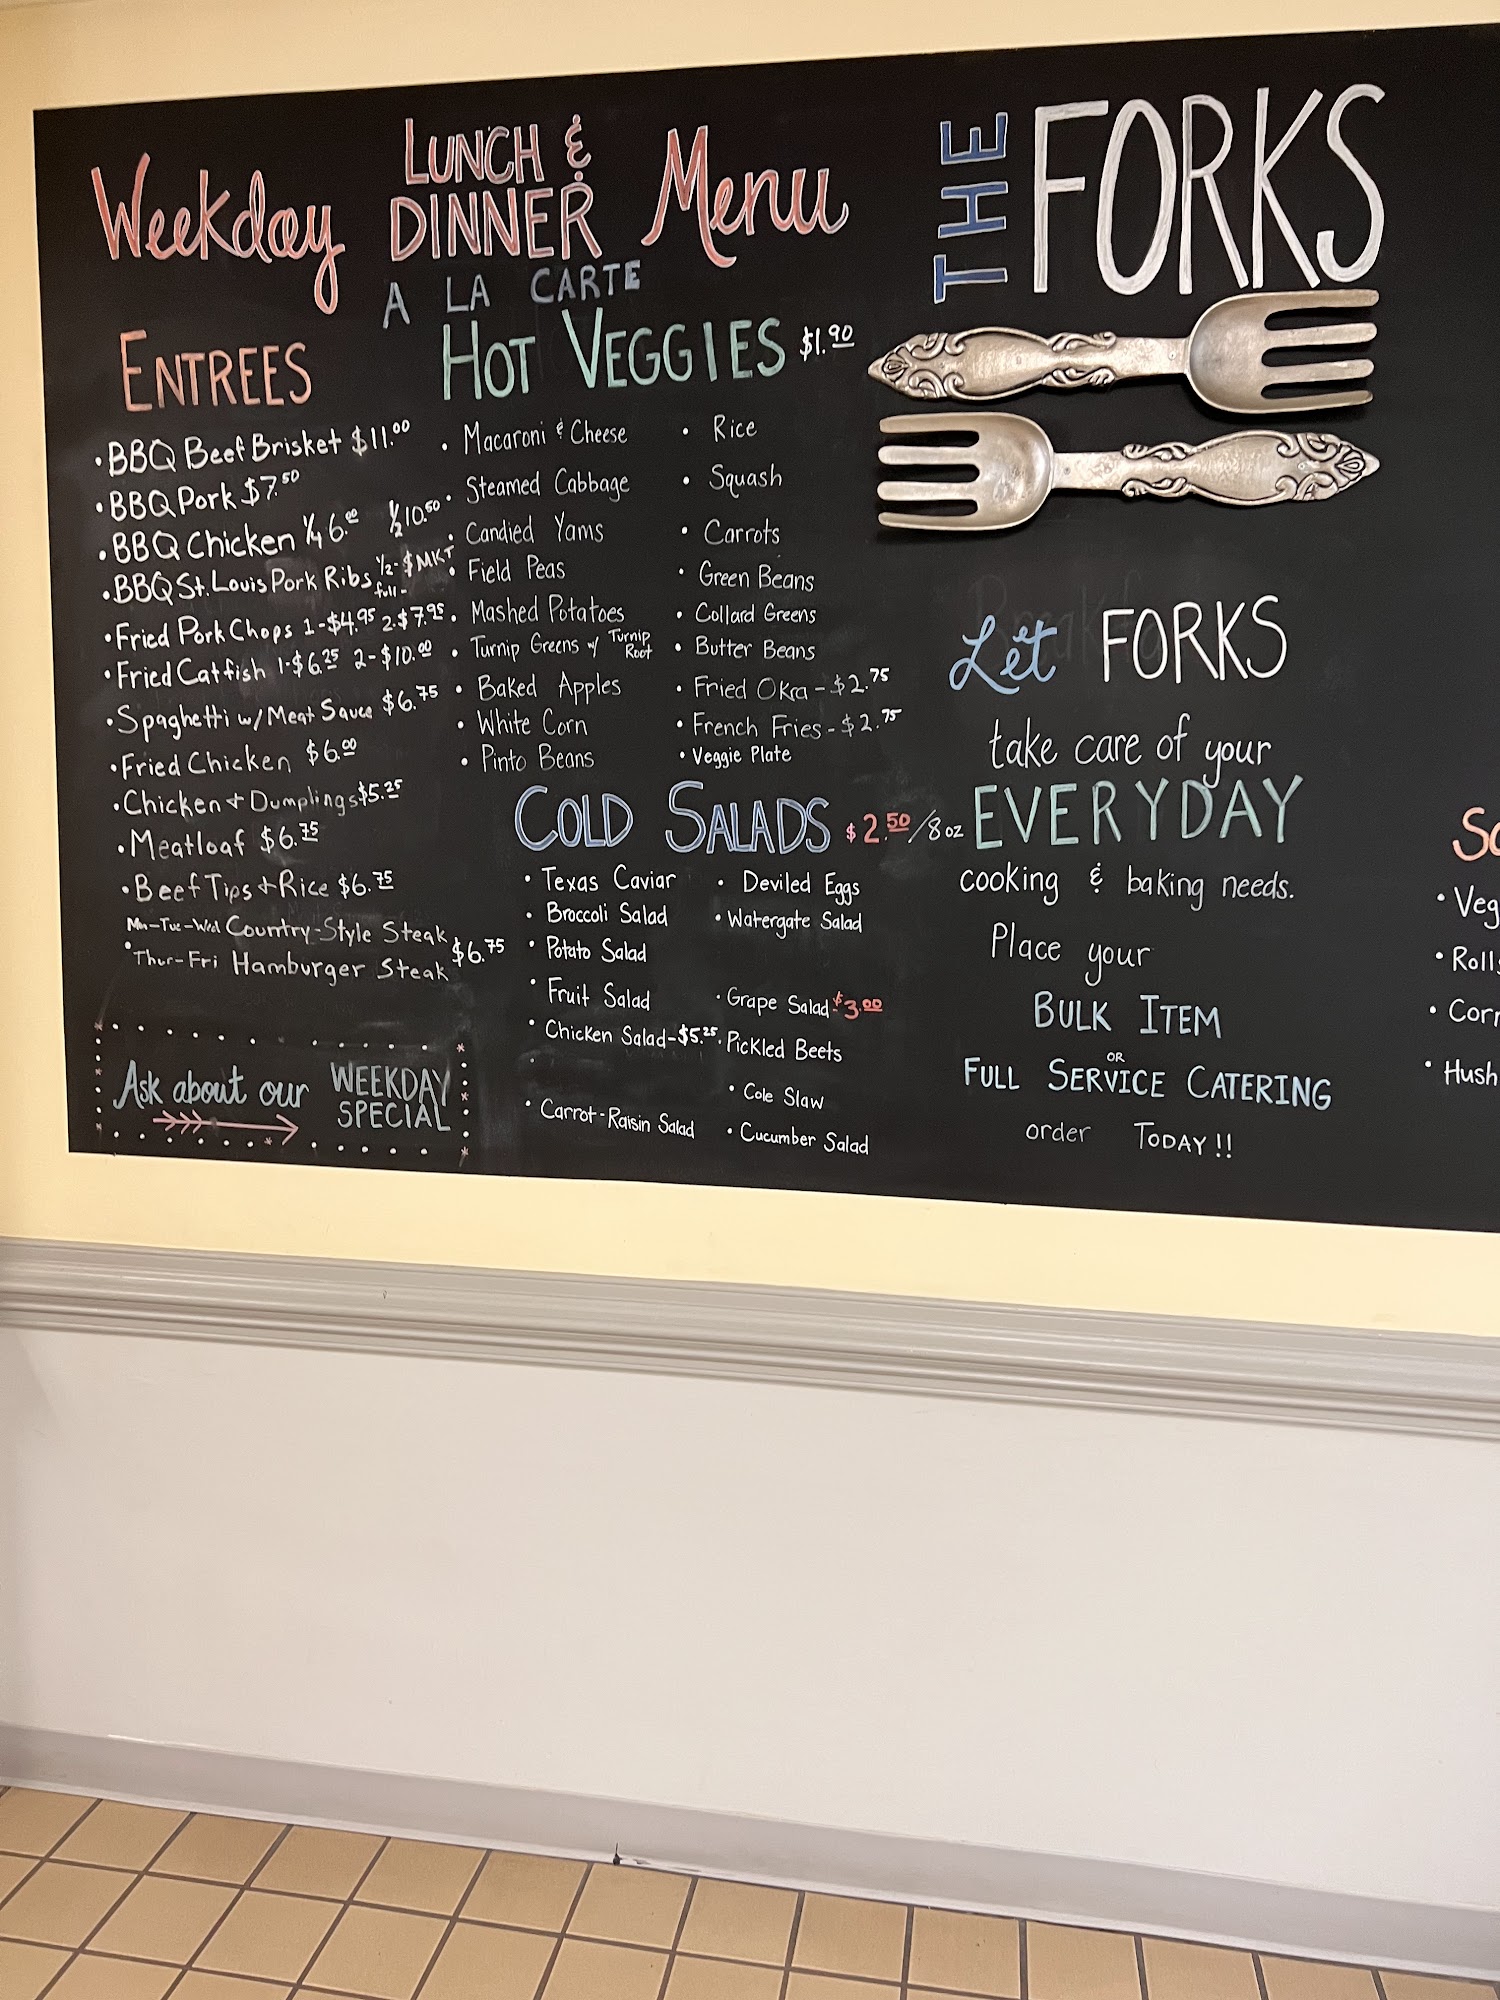 Weekday LUNCH & DINNER Menu
A LA CARTE
ENTREES
• BBQ Beef Brisket $11.00
• BBQ Pork $7.50
• BBQ Chicken 1/4 6.00 1/2 10.50
• BBQ St. Louis Pork Ribs 1/2- $MKT
full-
• Fried Pork Chops 1-$4.95 2-$7.95
• Fried Catfish 1-$6.25 2-$10.00
• Spaghetti w/ Meat Sauce $6.75
• Fried Chicken $6.00
• Chicken + Dumplings $5.25
• Meatloaf $6.75
• Beef Tips + Rice $6.75
Mon-Tue-Wed Country-Style Steak
• Thur-Fri Hamburger Steak $6.75
Ask about our WEEKDAY
SPECIAL
HOT VEGGIES $1.90
• Macaroni & Cheese
• Steamed Cabbage
• Candied Yams
• Field Peas
• Mashed Potatoes
• Turnip Greens w/ Turnip Root
• Baked Apples
• White Corn
• Pinto Beans
• Rice
• Squash
• Carrots
• Green Beans
• Collard Greens
• Butter Beans
• Fried Okra - $2.75
• French Fries - $2.75
• Veggie Plate
COLD SALADS $2.50/8oz
• Texas Caviar
• Broccoli Salad
• Potato Salad
• Fruit Salad
• Chicken Salad - $5.25
•
• Carrot-Raisin Salad
• Deviled Eggs
• Watergate Salad
• Grape Salad - $3.00
• Pickled Beets
• Cole Slaw
• Cucumber Salad
THE FORKS
Let FORKS
take care of your
EVERYDAY
cooking & baking needs.
Place your
BULK ITEM
OR
FULL SERVICE CATERING
order TODAY!!
• Roll
• Hush